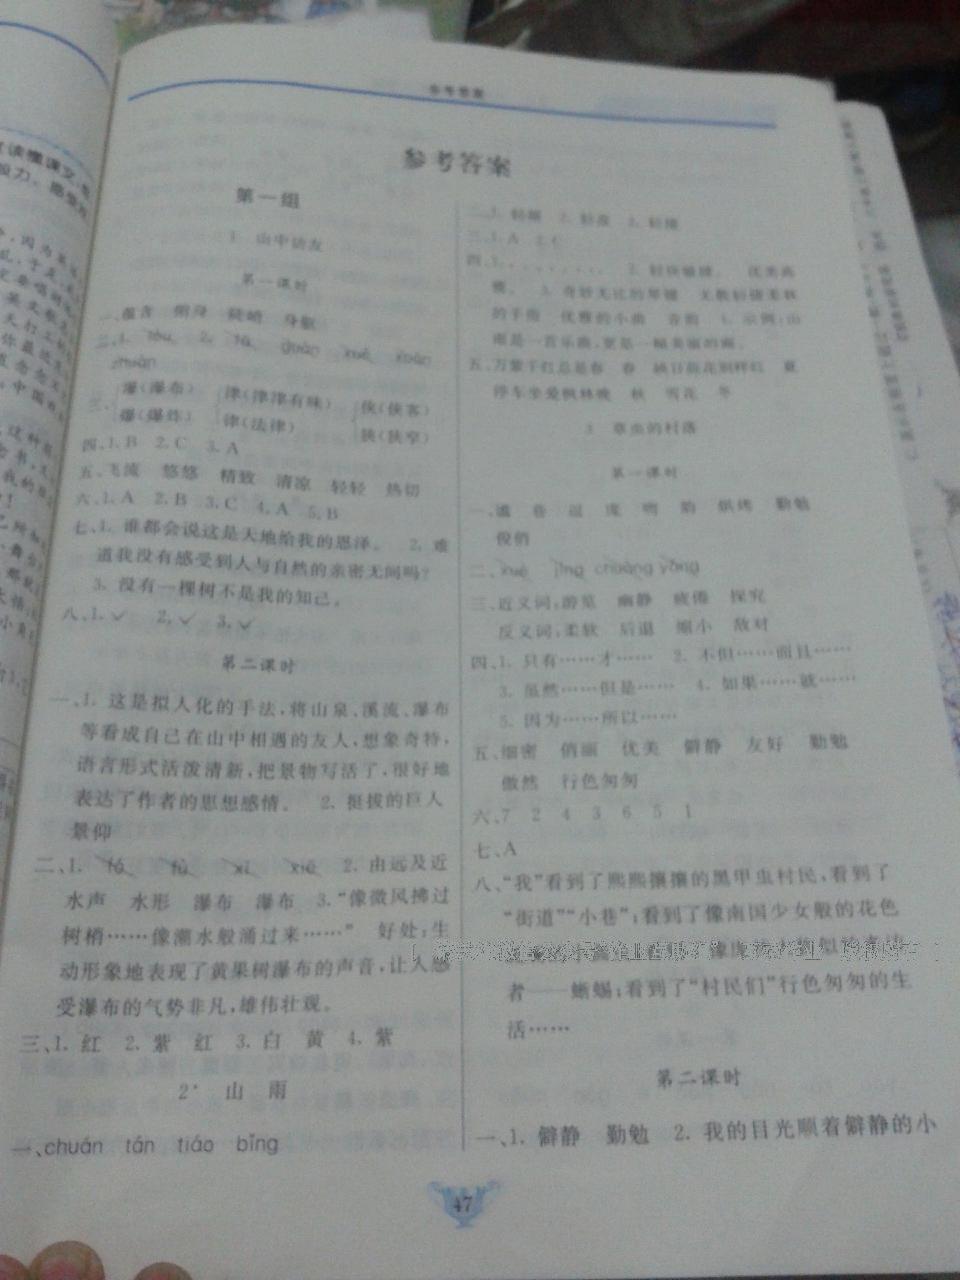 参考答案
参考答案
第一组
1 山中访友
第一课时
一、蕴含 俯身 陡峭 身躯
爆(瀑布) 津(津津有味) 侠(侠客)
三、
爆(爆炸) 律(法律) 狭(狭窄)
四、1. B 2. C 3. A
五、飞流 悠悠 精致 清凉 轻轻 热切
六、1. A 2. B 3. C 4. A 5. B
七、1. 谁都会说这是天地给我的恩泽。 2. 难
道我没有感受到人与自然的亲密无间吗?
3. 没有一棵树不是我的知己。
八、1. ✓ 2. ✓ 3. ✓
第二课时
一、1. 这是拟人化的手法,将山泉、溪流、瀑布
等看成自己在山中相遇的友人,想象奇特,
语言形式活泼清新,把景物写活了,很好地
表达了作者的思想感情。 2. 挺拔的巨人
景仰
二、1. fó fú xī xiē 2. 由远及近
水声 水形 瀑布 瀑布 3. “像微风拂过
树梢……像潮水般涌过来……” 好处:生
动形象地表现了黄果树瀑布的声音,让人感
受瀑布的气势非凡,雄伟壮观。
三、1. 红 2. 紫 红 3. 白 黄 4. 紫
2* 山 雨
一、chuán tán tiáo bīng
二、1. 轻捷 2. 轻盈 3. 轻捷
三、1. A 2. C
四、1. 2. 轻快敏捷。 优美高
雅。 3. 奇妙无比的琴键 无数轻捷柔软
的手指 优雅的小曲 音韵 4. 示例:山
雨是一首乐曲,更是一幅美丽的画。
五、万紫千红总是春 春 映日荷花别样红 夏
停车坐爱枫林晚 秋 雪花 冬
3 草虫的村落
第一课时
一、谧 巷 逗 庞 吻 韵 烘烤 勤勉
俊俏
三、近义词:游览 幽静 疲倦 探究
反义词:柔软 后退 缩小 敌对
四、1. 只有……才…… 2. 不但……而且……
3. 虽然……但是…… 4. 如果……就……
5. 因为……所以……
五、细密 俏丽 优美 僻静 友好 勤勉
傲然 行色匆匆
六、7 2 4 3 6 5 1
七、A
八、“我”看到了熙熙攘攘的黑甲虫村民,看到了
“街道”“小巷”;看到了像南国少女般的花色
者——蜥蜴;看到了“村民们”行色匆匆的生
活……
第二课时
一、1. 僻静 勤勉 2. 我的目光顺着僻静的小
47